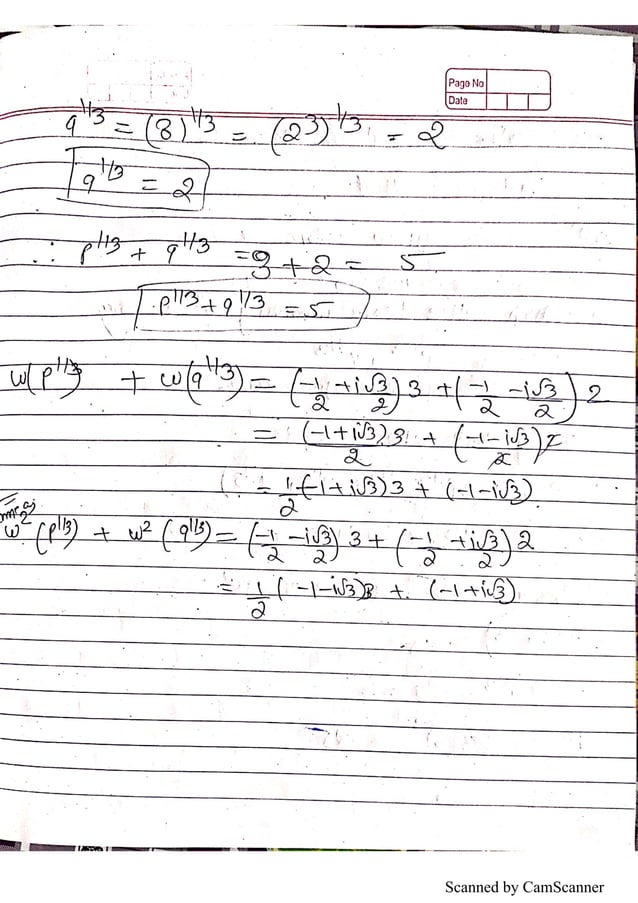 Page No
Date
q^1/3 = (8)^1/3 = (2^3)^1/3 = 2
q^1/3 = 2
∴ p^1/3 + q^1/3 = 3 + 2 = 5
p^1/3 + q^1/3 = 5
ω(p^1/3) + ω(q^1/3) = (-1/2 + i√3/2) 3 + (-1/2 - i√3/2) 2
= (-1+i√3)/2 3 + (-1-i√3)/2 2
= 1/2 (-1+i√3) 3 + (-1-i√3)
ω^2 (p^1/3) + ω^2 (q^1/3) = (-1/2 - i√3/2) 3 + (-1/2 + i√3/2) 2
= 1/2 (-1-i√3) 3 + (-1+i√3)
Scanned by CamScanner